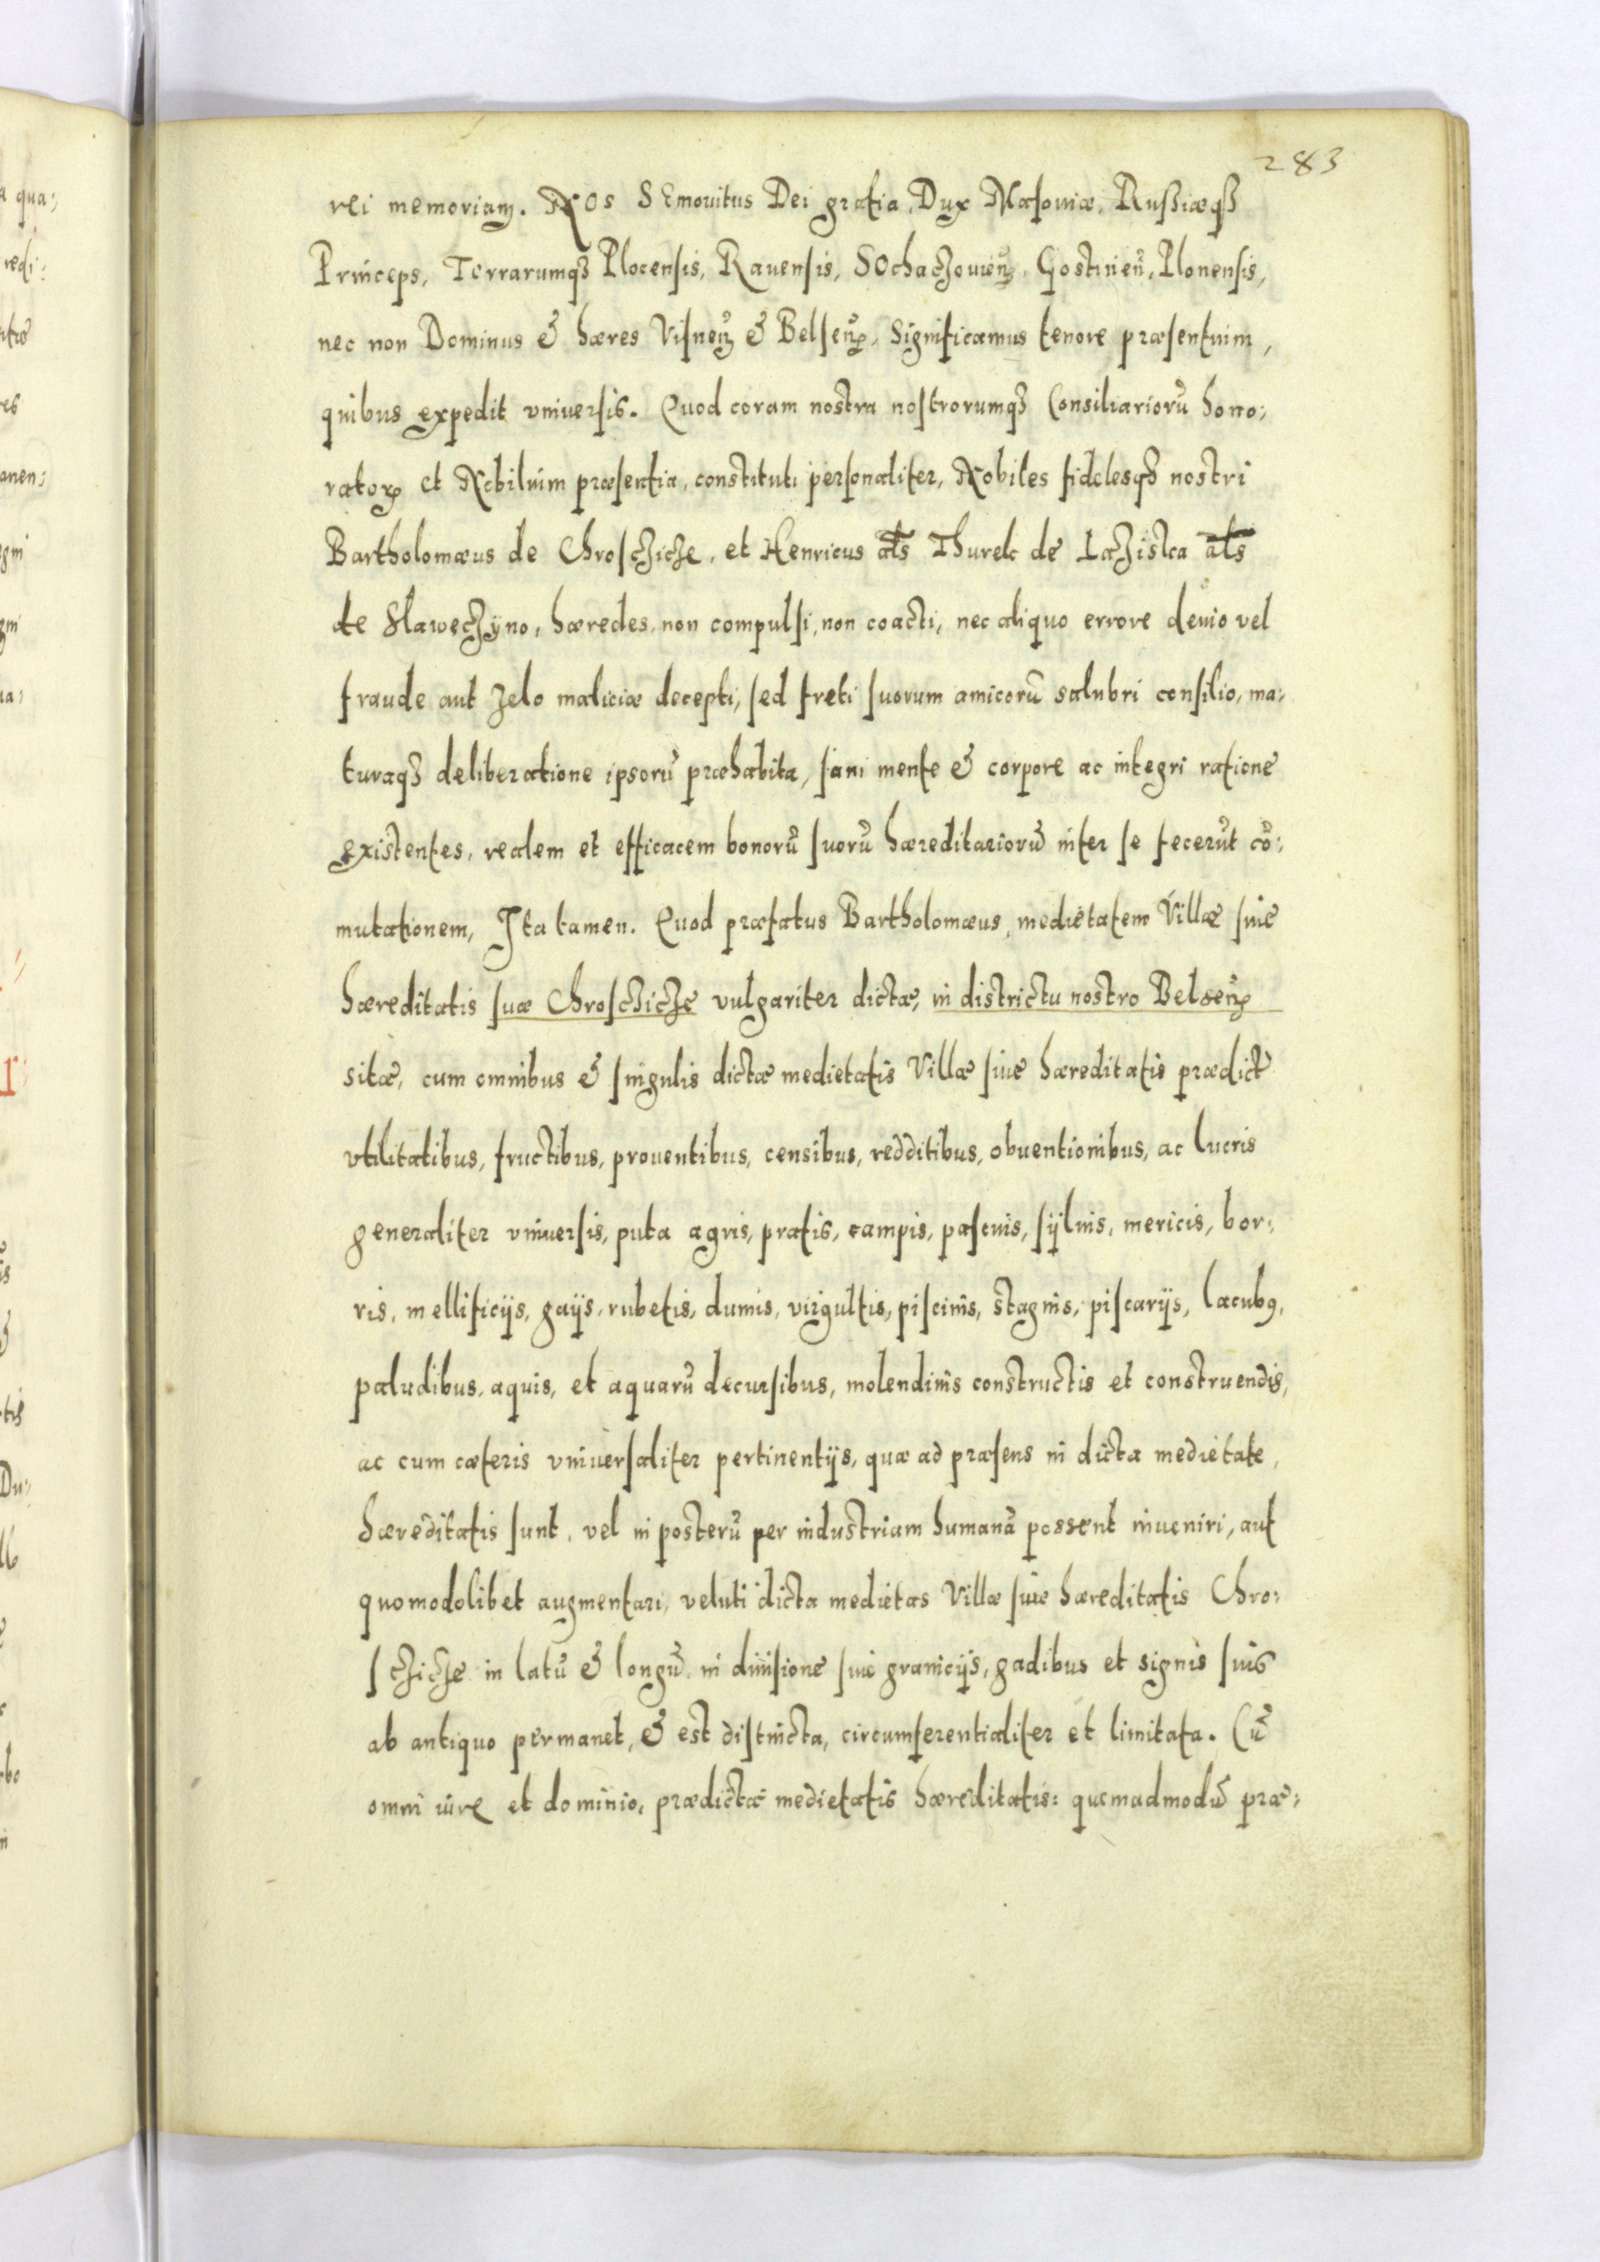 283
rei memoriam. Nos SEmouitus Dei gratia, Dux Masouiæ, Russiæqȝ
Princeps, Terrarumqȝ Plocensis, Rauensis, SOchaczouien̄, Gostinien̄, Plonensis,
nec non Dominus & hæres Visnen̄ & Belsen̄, Significamus tenore præsentium,
quibus expedit vniuersis. Quod coram nostra nostrorumqȝ Consiliariorū hono:
ratorꝝ et Nobilium præsentia, constituti personaliter, Nobiles fidelesqȝ nostri
Bartholomæus de Chrosczicze, et Henricus als Thurek de Laziska als
de Slaweczÿno, hæredes, non compulsi, non coacti, nec aliquo errore deuio vel
fraude aut zelo maliciæ decepti, sed freti suorum amicorū salubri consilio, ma:
turaqȝ deliberatione ipsorū præhabita, sani mente & corpore ac integri ratione
existentes, realem et efficacem bonorū suorū hæreditariorū inter se fecerūt cō:
mutationem, Ita tamen. Quod præfatus Bartholomæus, medietatem Villæ siue
hæreditatis suæ Chrosczicze vulgariter dictæ, in districtu nostro Belsen̄
sitæ, cum omnibus & singulis dictæ medietatis Villæ siue hæreditatis prædict
vtilitatibus, fructibus, prouentibus, censibus, redditibus, obuentionibus, ac lucris
generaliter vniuersis, puta agris, pratis, campis, pascuis, sÿluis, mericis, bor:
ris, mellificijs, gaijs, rubetis, dumis, virgultis, piscinis, stagnis, piscarijs, lacubꝯ,
paludibus, aquis, et aquarū decursibus, molendinis constructis et construendis,
ac cum cæteris vniuersaliter pertinentijs, quæ ad præsens in dicta medietate,
hæreditatis sunt, vel in posterū per industriam humanā possent inueniri, aut
quomodolibet augmentari, veluti dicta medietas Villæ siue hæreditatis Chro:
sczicze in latū & longū, in diuisione siue granicijs, gadibus et signis suis
ab antiquo permanet, & est distincta, circumferentialiter et limitata. Cū
omni iure et dominio, prædictæ medietatis hæreditatis: quemadmodū præ: